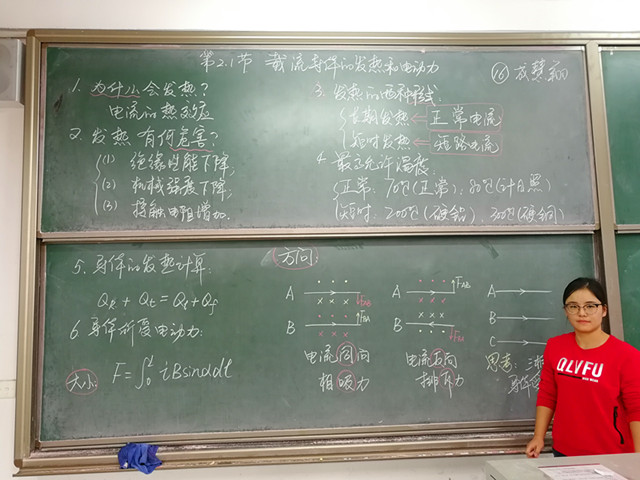 第2.1节 载流导体的发热和电动力
⑯ 成慧翔
1. 为什么会发热?
电流的热效应
2. 发热有何危害?
(1) 绝缘性能下降;
(2) 机械强度下降;
(3) 接触电阻增加.
3. 发热的两种形式:
长期发热 ⇐ 正常电流
短时发热 ⇐ 短路电流
4. 最高允许温度:
正常: 70℃(正常); 80℃(计日照)
短时: 200℃(硬铝)、300℃(硬铜)
5. 导体的发热计算:
QR + Qt = Ql + Qf
6. 导体所受电动力:
大小: F=∫₀ˡ iBsinαdl
方向:
A
FAB
B
FBA
电流同向
相吸力
A
FAB
B
FBA
电流反向
排斥力
A
B
C
思考: 三相
导体
QLVFU